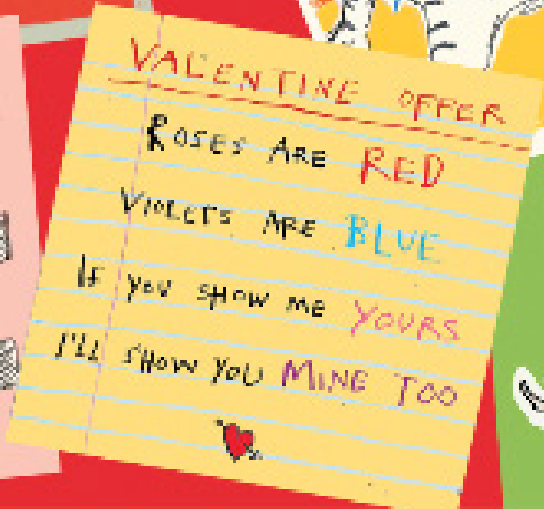 VALENTINE OFFER
ROSES ARE RED
VIOLETS ARE BLUE
IF YOU SHOW ME YOURS
I'LL SHOW YOU MINE TOO